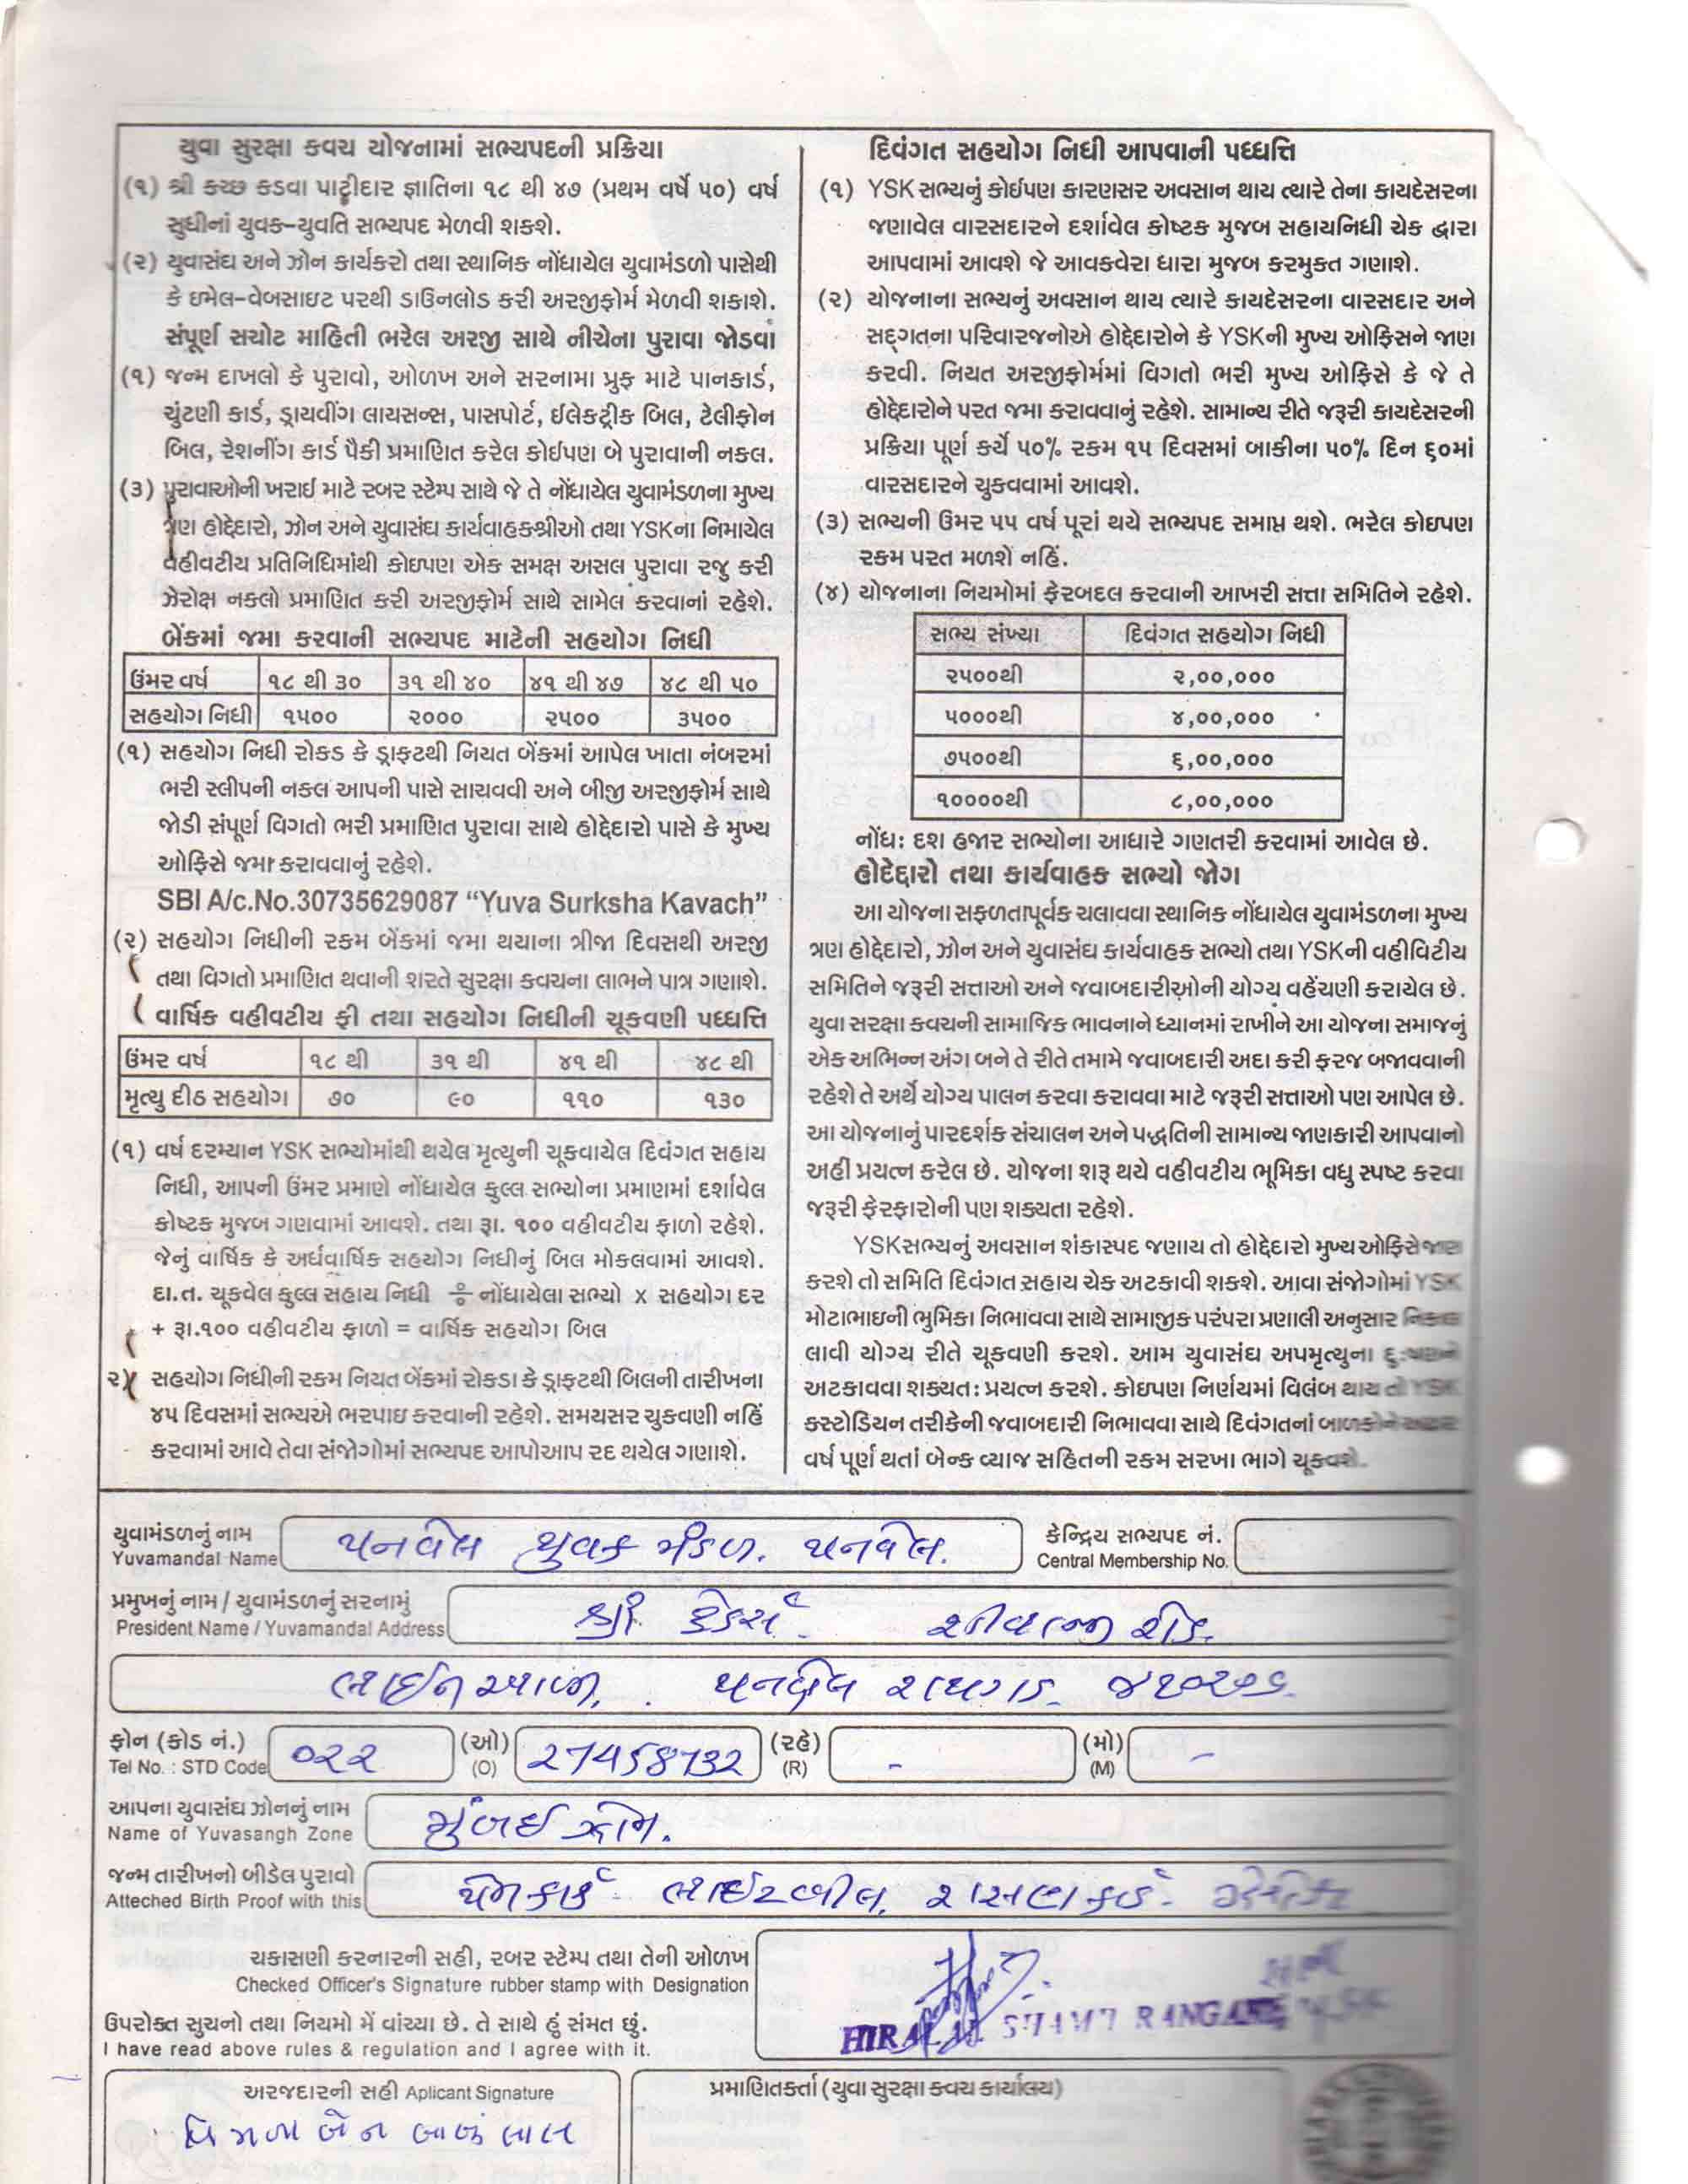 યુવા સુરક્ષા કવચ યોજનામાં સભ્યપદની પ્રક્રિયા
(૧) શ્રી કચ્છ કડવા પાટીદાર જ્ઞાતિના ૧૮ થી ૪૭ (પ્રથમ વર્ષે ૫૦) વર્ષ
સુધીનાં યુવક-યુવતિ સભ્યપદ મેળવી શકશે.
(૨) યુવાસંઘ અને ઝોન કાર્યકરો તથા સ્થાનિક નોંધાયેલ યુવામંડળો પાસેથી
કે ઇમેલ-વેબસાઇટ પરથી ડાઉનલોડ કરી અરજીફોર્મ મેળવી શકાશે.
સંપૂર્ણ સચોટ માહિતી ભરેલ અરજી સાથે નીચેના પુરાવા જોડવાં
(૧) જન્મ દાખલો કે પુરાવો, ઓળખ અને સરનામા પ્રુફ માટે પાનકાર્ડ,
ચુંટણી કાર્ડ, ડ્રાયવીંગ લાયસન્સ, પાસપોર્ટ, ઈલેકટ્રીક બિલ, ટેલીફોન
બિલ, રેશનીંગ કાર્ડ પૈકી પ્રમાણિત કરેલ કોઈપણ બે પુરાવાની નકલ.
(૩) પુરાવાઓની ખરાઈ માટે રબર સ્ટેમ્પ સાથે જે તે નોંધાયેલ યુવામંડળના મુખ્ય
ત્રણ હોદ્દેદારો, ઝોન અને યુવાસંઘ કાર્યવાહકશ્રીઓ તથા YSKના નિમાયેલ
વહીવટીય પ્રતિનિધિમાંથી કોઇપણ એક સમક્ષ અસલ પુરાવા રજુ કરી
ઝેરોક્ષ નકલો પ્રમાણિત કરી અરજીફોર્મ સાથે સામેલ કરવાનાં રહેશે.
બેંકમાં જમા કરવાની સભ્યપદ માટેની સહયોગ નિધી
ઉંમર વર્ષ ૧૮ થી ૩૦ ૩૧ થી ૪૦ ૪૧ થી ૪૭ ૪૮ થી ૫૦
સહયોગ નિધી ૧૫૦૦ ૨૦૦૦ ૨૫૦૦ ૩૫૦૦
(૧) સહયોગ નિધી રોકડ કે ડ્રાફટથી નિયત બેંકમાં આપેલ ખાતા નંબરમાં
ભરી સ્લીપની નકલ આપની પાસે સાચવવી અને બીજી અરજીફોર્મ સાથે
જોડી સંપૂર્ણ વિગતો ભરી પ્રમાણિત પુરાવા સાથે હોદ્દેદારો પાસે કે મુખ્ય
ઓફિસે જમા કરાવવાનું રહેશે.
SBI A/c.No.30735629087 “Yuva Surksha Kavach”
(૨) સહયોગ નિધીની રકમ બેંકમાં જમા થયાના ત્રીજા દિવસથી અરજી
તથા વિગતો પ્રમાણિત થવાની શરતે સુરક્ષા કવચના લાભને પાત્ર ગણાશે.
વાર્ષિક વહીવટીય ફી તથા સહયોગ નિધીની ચૂકવણી પધ્ધત્તિ
ઉંમર વર્ષ ૧૮ થી ૩૧ થી ૪૧ થી ૪૮ થી
મૃત્યુ દીઠ સહયોગ ૭૦ ૯૦ ૧૧૦ ૧૩૦
(૧) વર્ષ દરમ્યાન YSK સભ્યોમાંથી થયેલ મૃત્યુની ચૂકવાયેલ દિવંગત સહાય
નિધી, આપની ઉંમર પ્રમાણે નોંધાયેલ કુલ્લ સભ્યોના પ્રમાણમાં દર્શાવેલ
કોષ્ટક મુજબ ગણવામાં આવશે. તથા રૂા. ૧૦૦ વહીવટીય ફાળો રહેશે.
જેનું વાર્ષિક કે અર્ધવાર્ષિક સહયોગ નિધીનું બિલ મોકલવામાં આવશે.
દા.ત. ચૂકવેલ કુલ્લ સહાય નિધી ÷ નોંધાયેલા સભ્યો x સહયોગ દર
+ રૂા.૧૦૦ વહીવટીય ફાળો = વાર્ષિક સહયોગ બિલ
૨) સહયોગ નિધીની રકમ નિયત બેંકમાં રોકડા કે ડ્રાફટથી બિલની તારીખના
૪૫ દિવસમાં સભ્યએ ભરપાઇ કરવાની રહેશે. સમયસર ચુકવણી નહિં
કરવામાં આવે તેવા સંજોગોમાં સભ્યપદ આપોઆપ રદ થયેલ ગણાશે.
દિવંગત સહયોગ નિધી આપવાની પધ્ધત્તિ
(૧) YSK સભ્યનું કોઈપણ કારણસર અવસાન થાય ત્યારે તેના કાયદેસરના
જણાવેલ વારસદારને દર્શાવેલ કોષ્ટક મુજબ સહાયનિધી ચેક દ્વારા
આપવામાં આવશે જે આવકવેરા ધારા મુજબ કરમુક્ત ગણાશે.
(૨) યોજનાના સભ્યનું અવસાન થાય ત્યારે કાયદેસરના વારસદાર અને
સદ્‌ગતના પરિવારજનોએ હોદ્દેદારોને કે YSKની મુખ્ય ઓફિસને જાણ
કરવી. નિયત અરજીફોર્મમાં વિગતો ભરી મુખ્ય ઓફિસે કે જે તે
હોદ્દેદારોને પરત જમા કરાવવાનું રહેશે. સામાન્ય રીતે જરૂરી કાયદેસરની
પ્રક્રિયા પૂર્ણ કર્યે ૫૦% રકમ ૧૫ દિવસમાં બાકીના ૫૦% દિન ૬૦માં
વારસદારને ચુકવવામાં આવશે.
(૩) સભ્યની ઉંમર ૫૫ વર્ષ પૂરાં થયે સભ્યપદ સમાપ્ત થશે. ભરેલ કોઇપણ
રકમ પરત મળશે નહિં.
(૪) યોજનાના નિયમોમાં ફેરબદલ કરવાની આખરી સત્તા સમિતિને રહેશે.
સભ્ય સંખ્યા દિવંગત સહયોગ નિધી
૨૫૦૦થી ૨,૦૦,૦૦૦
૫૦૦૦થી ૪,૦૦,૦૦૦
૭૫૦૦થી ૬,૦૦,૦૦૦
૧૦૦૦૦થી ૮,૦૦,૦૦૦
નોંધ: દશ હજાર સભ્યોના આધારે ગણતરી કરવામાં આવેલ છે.
હોદેદ્દારો તથા કાર્યવાહક સભ્યો જોગ
આ યોજના સફળતાપૂર્વક ચલાવવા સ્થાનિક નોંધાયેલ યુવામંડળના મુખ્ય
ત્રણ હોદ્દેદારો, ઝોન અને યુવાસંઘ કાર્યવાહક સભ્યો તથા YSKની વહીવિટીય
સમિતિને જરૂરી સત્તાઓ અને જવાબદારીઓની યોગ્ય વહેંચણી કરાયેલ છે.
યુવા સરક્ષા કવચની સામાજિક ભાવનાને ધ્યાનમાં રાખીને આ યોજના સમાજનું
એક અભિન્ન અંગ બને તે રીતે તમામે જવાબદારી અદા કરી ફરજ બજાવવાની
રહેશે તે અર્થે યોગ્ય પાલન કરવા કરાવવા માટે જરૂરી સત્તાઓ પણ આપેલ છે.
આ યોજનાનું પારદર્શક સંચાલન અને પદ્ધતિની સામાન્ય જાણકારી આપવાનો
અહીં પ્રયત્ન કરેલ છે. યોજના શરૂ થયે વહીવટીય ભૂમિકા વધુ સ્પષ્ટ કરવા
જરૂરી ફેરફારોની પણ શક્યતા રહેશે.
YSKસભ્યનું અવસાન શંકાસ્પદ જણાય તો હોદ્દેદારો મુખ્ય ઓફિસે જાણ
કરશે તો સમિતિ દિવંગત સહાય ચેક અટકાવી શકશે. આવા સંજોગોમાં YSK
મોટાભાઇની ભુમિકા નિભાવવા સાથે સામાજીક પરંપરા પ્રણાલી અનુસાર નિકાલ
લાવી યોગ્ય રીતે ચૂકવણી કરશે. આમ યુવાસંઘ અપમૃત્યુના
અટકાવવા શક્યત: પ્રયત્ન કરશે. કોઇપણ નિર્ણયમાં વિલંબ થાય તો YSK
કસ્ટોડિયન તરીકેની જવાબદારી નિભાવવા સાથે દિવંગતનાં બાળકોને અઢાર
વર્ષ પૂર્ણ થતાં બેન્ક વ્યાજ સહિતની રકમ સરખા ભાગે ચૂકવશે.
યુવામંડળનું નામ પનવેલ યુવક મંડળ. પનવેલ. કેન્દ્રિય સભ્યપદ નં.
Yuvamandal Name Central Membership No.
પ્રમુખનું નામ / યુવામંડળનું સરનામું શ્રી શીવાજી રોડ.
President Name / Yuvamandal Address
લાઈન આળી. પનવેલ રાયગડ. ૪૧૦૨૦૬.
ફોન (કોડ નં.) ૦૨૨ (ઓ) 27458732 (રહે) - (મો) -
Tel No. : STD Code (O) (R) (M)
આપના યુવાસંઘ ઝોનનું નામ મુંબઈ ઝોન.
Name of Yuvasangh Zone
જન્મ તારીખનો બીડેલ પુરાવો પેનકાર્ડ. લાઈટબીલ. રાસણકાર્ડ.
Atteched Birth Proof with this
ચકાસણી કરનારની સહી, રબર સ્ટેમ્પ તથા તેની ઓળખ
Checked Officer's Signature rubber stamp with Designation
HIRALAL SHAMJI RANGANI
ઉપરોક્ત સુચનો તથા નિયમો મેં વાંચ્યા છે. તે સાથે હું સંમત છું.
I have read above rules & regulation and I agree with it.
અરજદારની સહી Aplicant Signature
વિમળાબેન બાબુલાલ
પ્રમાણિતકર્તા (યુવા સુરક્ષા કવચ કાર્યાલય)